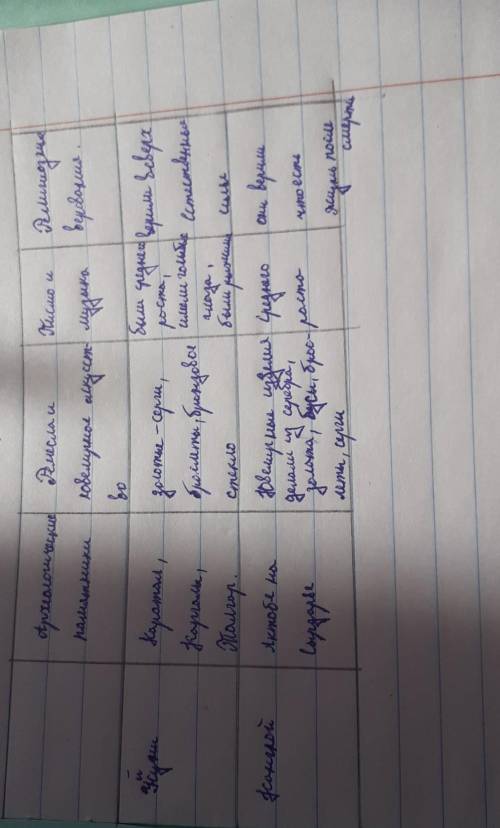 Археологические
памятники
Ремесла и
ювелирное искусст-
во
Письмо и
музыка
Религиозные
верования.
Уйсуни
Каратал,
Каргалы,
Талгар.
золотые - серги,
браслеты, бронзовое
стекло
были среднего
роста,
имели голубые
глаза,
были рыжими
верили в сверх
естественные
силы
Кангюй
Актобе на
Сырдарье
Ювелирные изделия
делали из серебра,
золота, бусы, брас-
леты, серги
среднего
роста
они верили
что есть
жизнь после
смерти